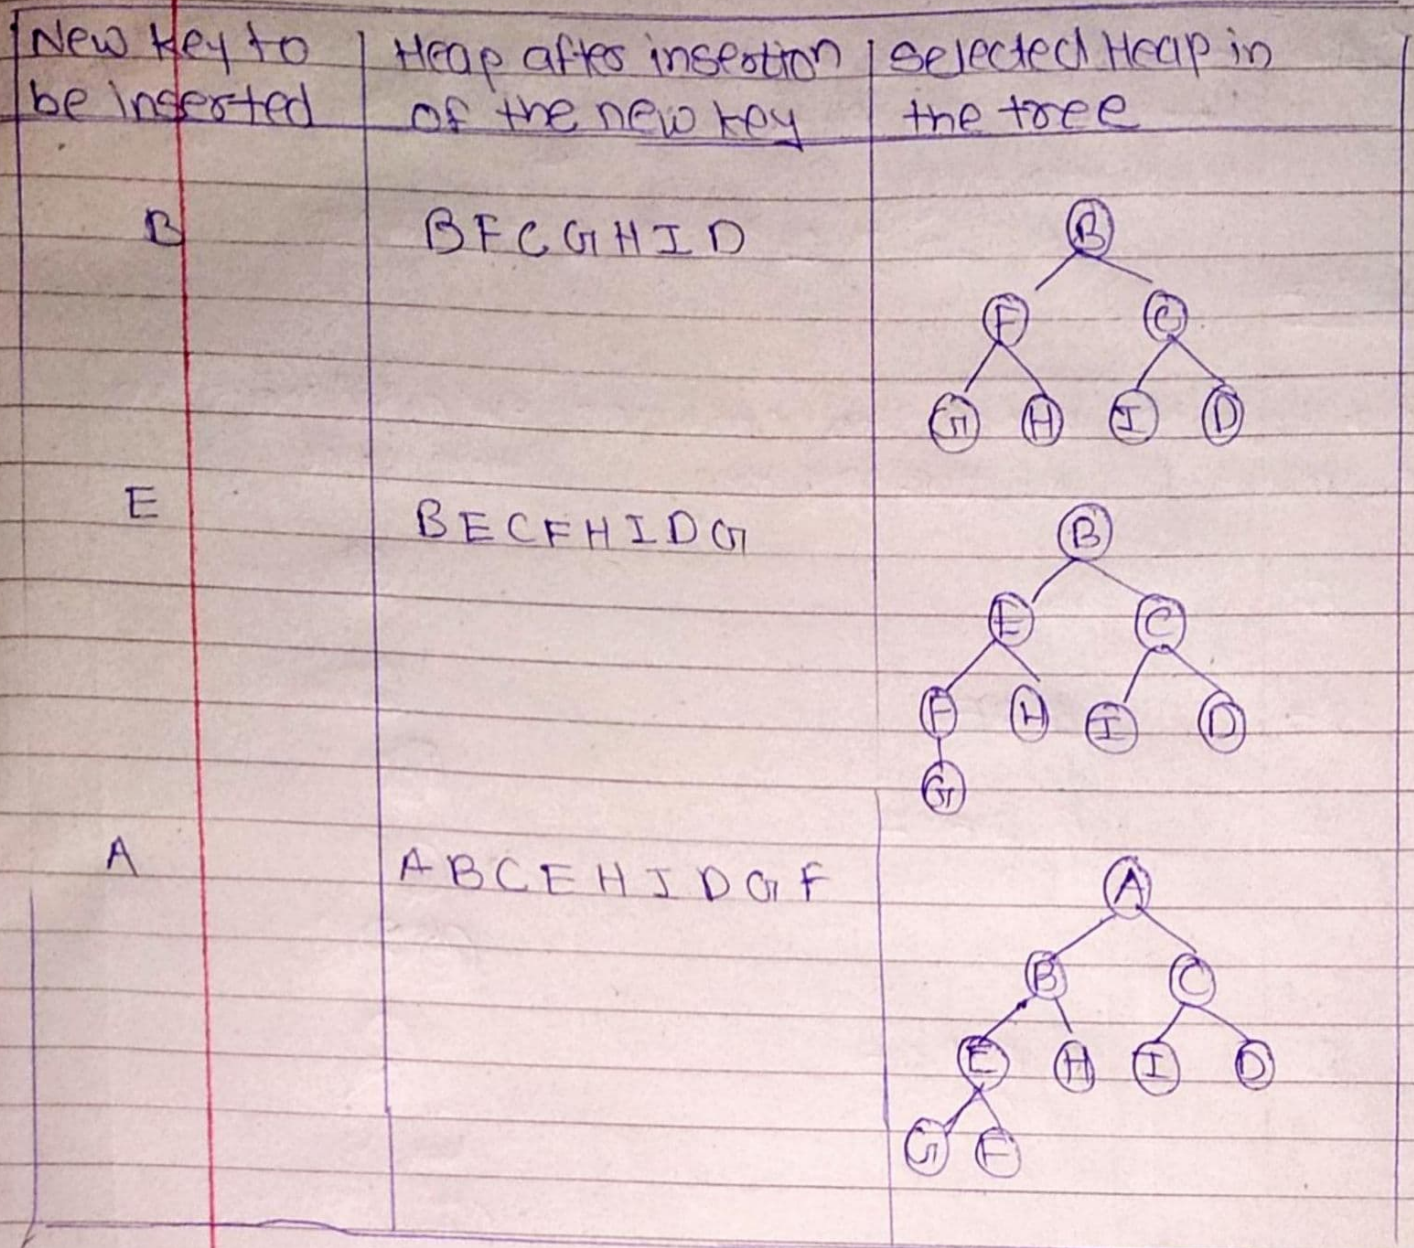 New key to
be inserted
Heap after insertion
of the new key
selected Heap in
the tree
B
B F C G H I D
B
F C
G H I D
E
B E C F H I D G
B
E C
F H I D
G
A
A B C E H I D G F
A
B C
E H I D
G F